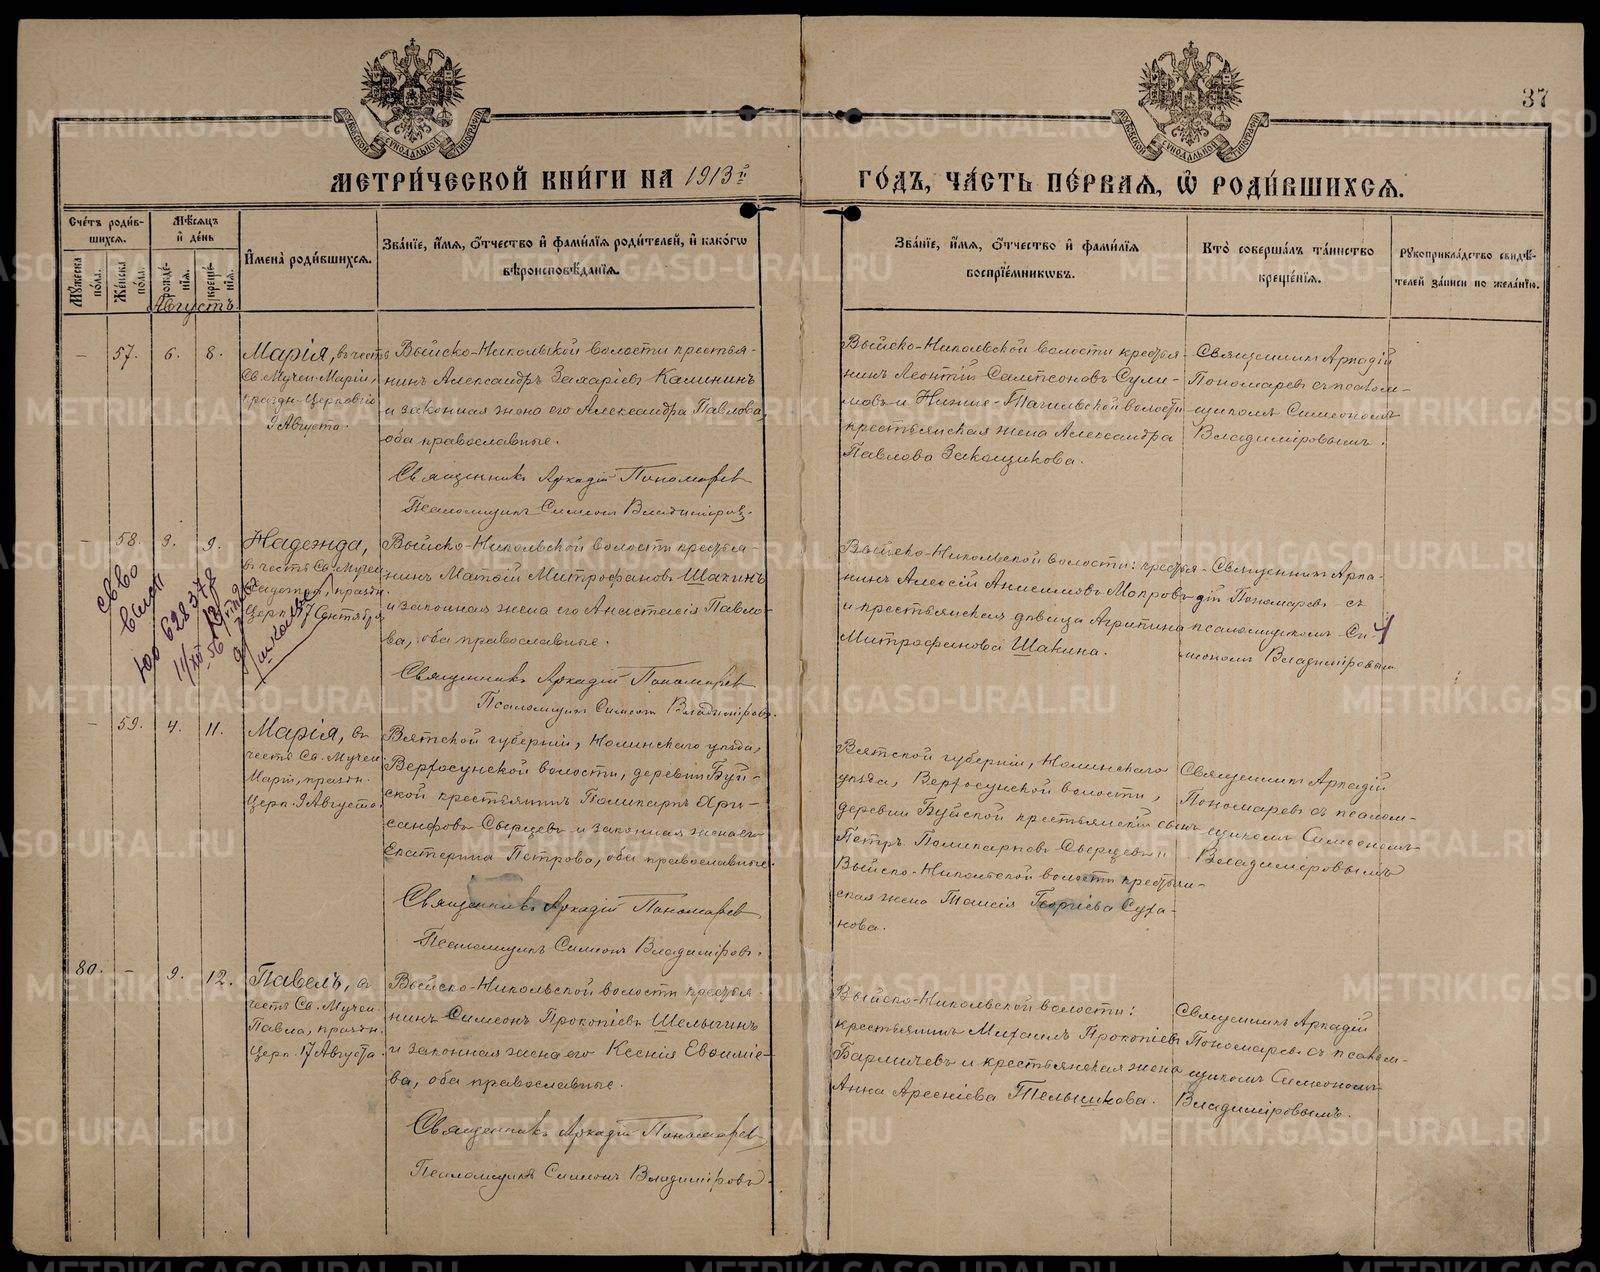 37
МОСКОВСКОЙ СѴНОДАЛЬНОЙ ТИПОГРАФІИ
МОСКОВСКОЙ СѴНОДАЛЬНОЙ ТИПОГРАФІИ
МЕТРИ́ЧЕСКОЙ КНИ́ГИ НА 1913й
ГО́ДЪ, ЧА́СТЬ ПЕ́РВАЯ, Ѽ РОДИ́ВШИХСЯ.
Сче́тъ роди́в-
шихся.
Мꙋ́жеска по́ла.
Же́нска по́ла.
Мѣ́сяцъ
и҆ де́нь
рожде́-
нїя.
креще́-
нїя.
И҆мена̀ роди́вшихся.
Зва́нїе, и҆́мя, ѻ҆́тчество и҆ фами́лїя роди́телей, и҆ како́гѡ
вѣроисповѣ́данїя.
Зва́нїе, и҆́мя, ѻ҆́тчество и҆ фами́лїя
воспрїе́мникѡвъ.
Кто̀ соверша́лъ та́инство
креще́нїя.
Рꙋкоприкла́дство свидѣ́-
телей за́писи по жела́нїю.
Августъ
– 57. 6. 8.
Марія, въ честь
Св. Мучен. Маріи,
праздн. Церковію
9 Августа.
Выйско-Никольской волости крестья-
нинъ Александръ Захаріевъ Калининъ
и законная жена его Александра Павлова,
оба православные.
Священникъ Аркадій Пономаревъ
Псаломщикъ Симеонъ Владиміровъ.
Выйско-Никольской волости крестья-
нинъ Леонтій Сампсоновъ Сули-
мовъ и Нижне-Тагильской волости
крестьянская жена Александра
Павлова Закощикова.
Священникъ Аркадій
Пономаревъ съ псалом-
щикомъ Симеономъ
Владиміровымъ.
– 58. 9. 9.
Надежда,
въ честь Св. Мучен.
Надежды, праздн.
Церк. 17 Сентября
Выйско-Никольской волости крестья-
нинъ Матѳій Митрофановъ Шакинъ
и законная жена его Анастасія Павло-
ва, оба православные.
Священникъ Аркадій Пономаревъ
Псаломщикъ Симеонъ Владиміровъ.
св-во
выст
ЮО 628378
11/XII-56
Выйско-Никольской волости: крестья-
нинъ Алексій Анисимовъ Мокровъ
и крестьянская дѣвица Агрипина
Митрофанова Шакина.
Священникъ Арка-
дій Пономаревъ съ
псаломщикомъ Си-
меономъ Владиміровым
– 59. 4. 11.
Марія, въ
честь Св. Мучен.
Маріи, праздн.
Церк. 9 Августа.
Вятской губерніи, Нолинскаго уѣзда,
Верхосунской волости, деревни Буй-
ской крестьянинъ Поликарпъ Хри-
санфовъ Сырцевъ и законная жена его
Екатерина Петрова, оба православные.
Священникъ Аркадій Пономаревъ
Псаломщикъ Симеонъ Владиміровъ.
Вятской губерніи, Нолинскаго
уѣзда, Верхосунской волости,
деревни Буйской крестьянскій сынъ
Петръ Поликарповъ Сырцевъ и
Выйско-Никольской волости крестьян-
ская жена Таисія Георгіева Суха-
нова.
Священникъ Аркадій
Пономаревъ съ псалом-
щикомъ Симеономъ
Владиміровымъ
80. – 9. 12.
Павелъ, въ
честь Св. Мучен.
Павла, праздн.
Церк. 17 Августа.
Выйско-Никольской волости крестья-
нинъ Симеонъ Прокопіевъ Шелыгинъ
и законная жена его Ксенія Евѳиміе-
ва, оба православные.
Священникъ Аркадій Пономаревъ
Псаломщикъ Симеонъ Владиміровъ.
Выйско-Никольской волости:
крестьянинъ Михаилъ Прокопіевъ
Бармичевъ и крестьянская жена
Анна Арсеніева Телышкова.
Священникъ Аркадій
Пономаревъ съ псалом-
щикомъ Симеономъ
Владиміровымъ.